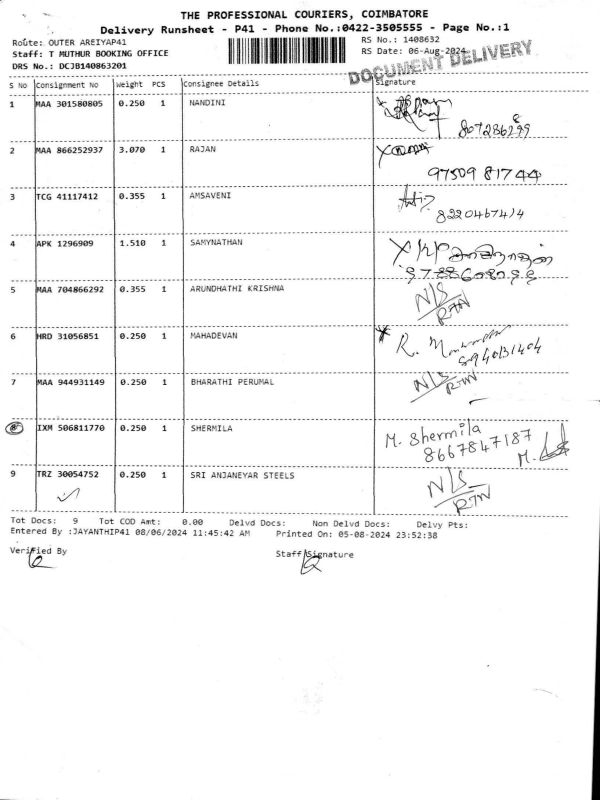 THE PROFESSIONAL COURIERS, COIMBATORE
Delivery Runsheet - P41 - Phone No.:0422-3505555 - Page No.:1
Route: OUTER AREIYAP41 RS No.: 1408632
Staff: T MUTHUR BOOKING OFFICE RS Date: 06-Aug-2024
DRS No.: DCJB140863201
DOCUMENT DELIVERY
S No Consignment No Weight PCS Consignee Details Signature
1 MAA 301580805 0.250 1 NANDINI
2 MAA 866252937 3.070 1 RAJAN
97509 81744
3 TCG 41117412 0.355 1 AMSAVENI
4 APK 1296909 1.510 1 SAMYNATHAN
5 MAA 704866292 0.355 1 ARUNDHATHI KRISHNA N/S
RTN
6 HRD 31056851 0.250 1 MAHADEVAN
7 MAA 944931149 0.250 1 BHARATHI PERUMAL N/S
RTN
8 IXM 506811770 0.250 1 SHERMILA M. Shermila
8667847187
9 TRZ 30054752 0.250 1 SRI ANJANEYAR STEELS N/S
RTN
Tot Docs: 9 Tot COD Amt: 0.00 Delvd Docs: Non Delvd Docs: Delvy Pts:
Entered By :JAYANTHIP41 08/06/2024 11:45:42 AM Printed On: 05-08-2024 23:52:38
Verified By Staff Signature